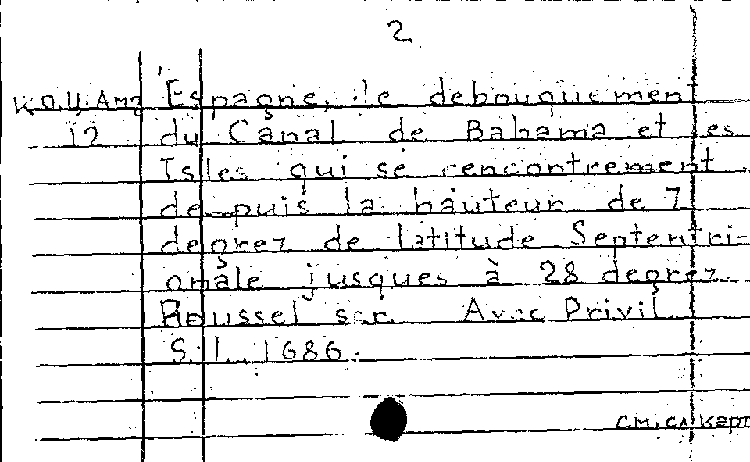 2
К.О.Ц.Ам2 Espagne, le debouquement
12 du Canal de Bahama et les
Isles qui se rencontrement
depuis la hauteur de 7
degrez de latitude Septentri-
onale jusques à 28 degrez.
Roussel scr. Avec Privil.
S. l. 1686.
см. сл. карт